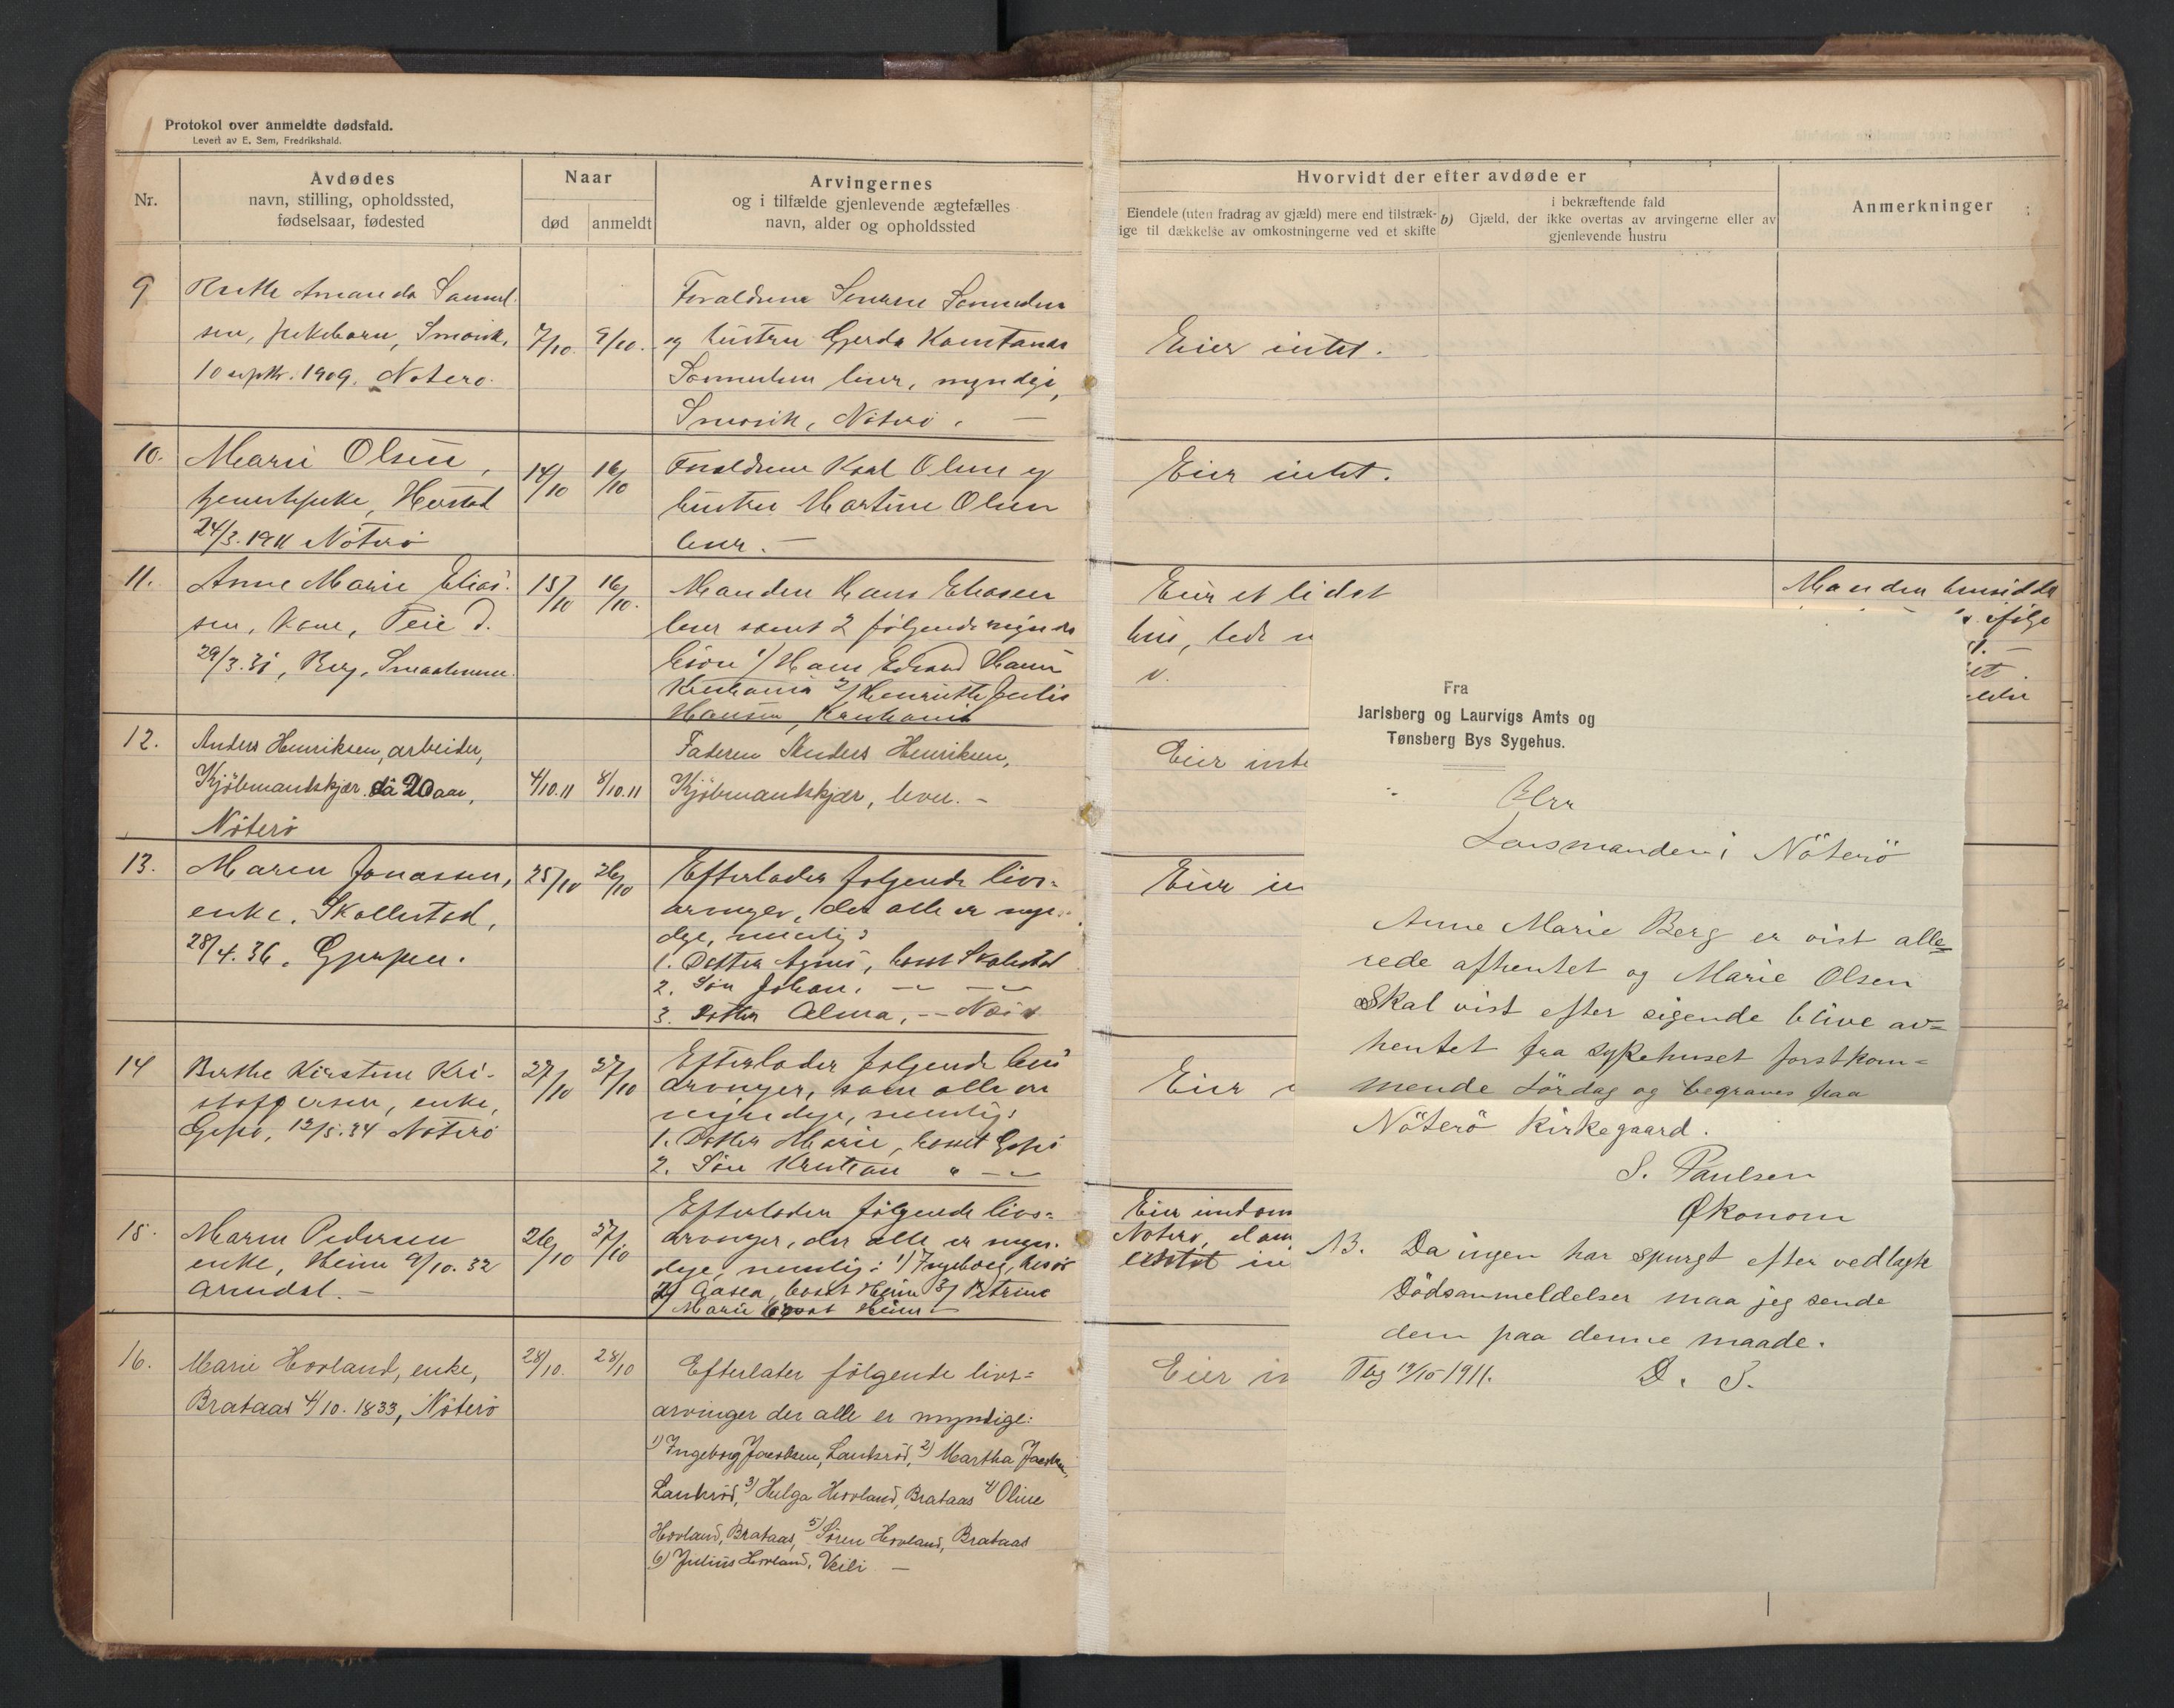 Protokol over anmeldte dødsfald.
Levert av E. Sem, Fredrikshald.
Nr.
Avdødes
navn, stilling, opholdssted,
fødselsaar, fødested
Naar
død
anmeldt
Arvingernes
og i tilfælde gjenlevende ægtefælles
navn, alder og opholdssted
Hvorvidt der efter avdøde er
Eiendele (uten fradrag av gjæld) mere end tilstræk-
ige til dækkelse av omkostningerne ved et skifte
i bekræftende fald
b) Gjæld, der ikke overtas av arvingerne eller av
gjenlevende hustru
Anmerkninger
9
Amanda Samuel
sen, pikebarn, Smørvik,
10 septbr. 1909. Nøterø.
7/10.
9/10.
Forældrene Samuelsen
og hustru Gjerda Konstanse
Samuelsen lever, myndige,
Smørvik, Nøterø. —
Eier intet.
10.
Marie Olsen,
tjenestepike, Herstad
24/3. 1911 Nøterø
14/10
16/10
Forældrene Karl Olsen og
hustru Martine Olsen
lever. —
Eier intet.
11.
Anne Marie Elias-
sen, kone, Teie d.
29/3. 31, Berg, Smaalenene.
15/10
16/10.
Manden Hans Eliasen
lever samt 2 følgende myndige
børn 1) Hans Edvard Hansen
Kristiania 2) Henriette Julie
Hansen, Kristiania
Eier et lidet
hus,
Manden hensidder
ifølge
12.
Anders Henriksen, arbeider,
Kjöbmandskjær. da 20 aar,
Nöterö
4/10.11
8/10.11
Faderen Anders Henriksen,
Kjöbmandskjær, lever. –
Eier inte
13.
Maren Jonassen,
enke, Skallestad,
28/4. 36. Gjerpen.
25/10
26/10
Efterlader følgende livs=
arvinger, der alle er myn-
dige, nemlig:
1. Datter Agnes, bosat Skallestad
2. Søn Johan, — —
3. Datter Alma, —
Eier in
14
Berthe Kirstine Kri-
stoffersen, enke,
Gipø, 12/5. 34 Nøterø
27/10
27/10
Efterlader følgende livs
arvinger, som alle er
myndige, nemlig:
1. Datter Marie, bosat Gipø
2. Søn Kristian " — —
Eier
15.
Maren Pedersen
enke, Heim 9/10. 32
Arendal. —
26/10
27/10
Efterlader følgende livs=
arvinger, der alle er myn-
dige, nemlig: 1) Ingeborg,
2) Aasen, bosat Heim 3) Petrine
Marie bosat Heim —
Eier eiendom
Nøterø,
16.
Marie Hovland, enke,
Brataas 4/10. 1833, Nöterö
28/10.
28/10
Efterlater fölgende livs=
arvinger der alle er myndige:
1) Ingeborg Jacobsen, Lankröd, 2) Martha Jacobsen,
Lankröd, 3) Helga Hovland, Brataas 4) Oline
Hovland, Brataas, 5) Sören Hovland, Brataas
6) Julius Hovland, Veili —
Eier in
Fra
Jarlsberg og Laurvigs Amts og
Tønsberg Bys Sygehus.
Herr
Lensmanden i Nöterö
Anne Marie Berg er vist alle=
rede afhentet og Marie Olsen
Skal vist efter sigende blive av=
hentet fra sykehuset forstkom=
mende Lördag og begraves paa
Nöterö Kirkegaard.
S. Paulsen
Økonom
NB. Da ingen har spurgt efter vedlagte
Dödsanmeldelser maa jeg sende
dem paa denne maade.
Tbg 19/10 1911.
D. S.